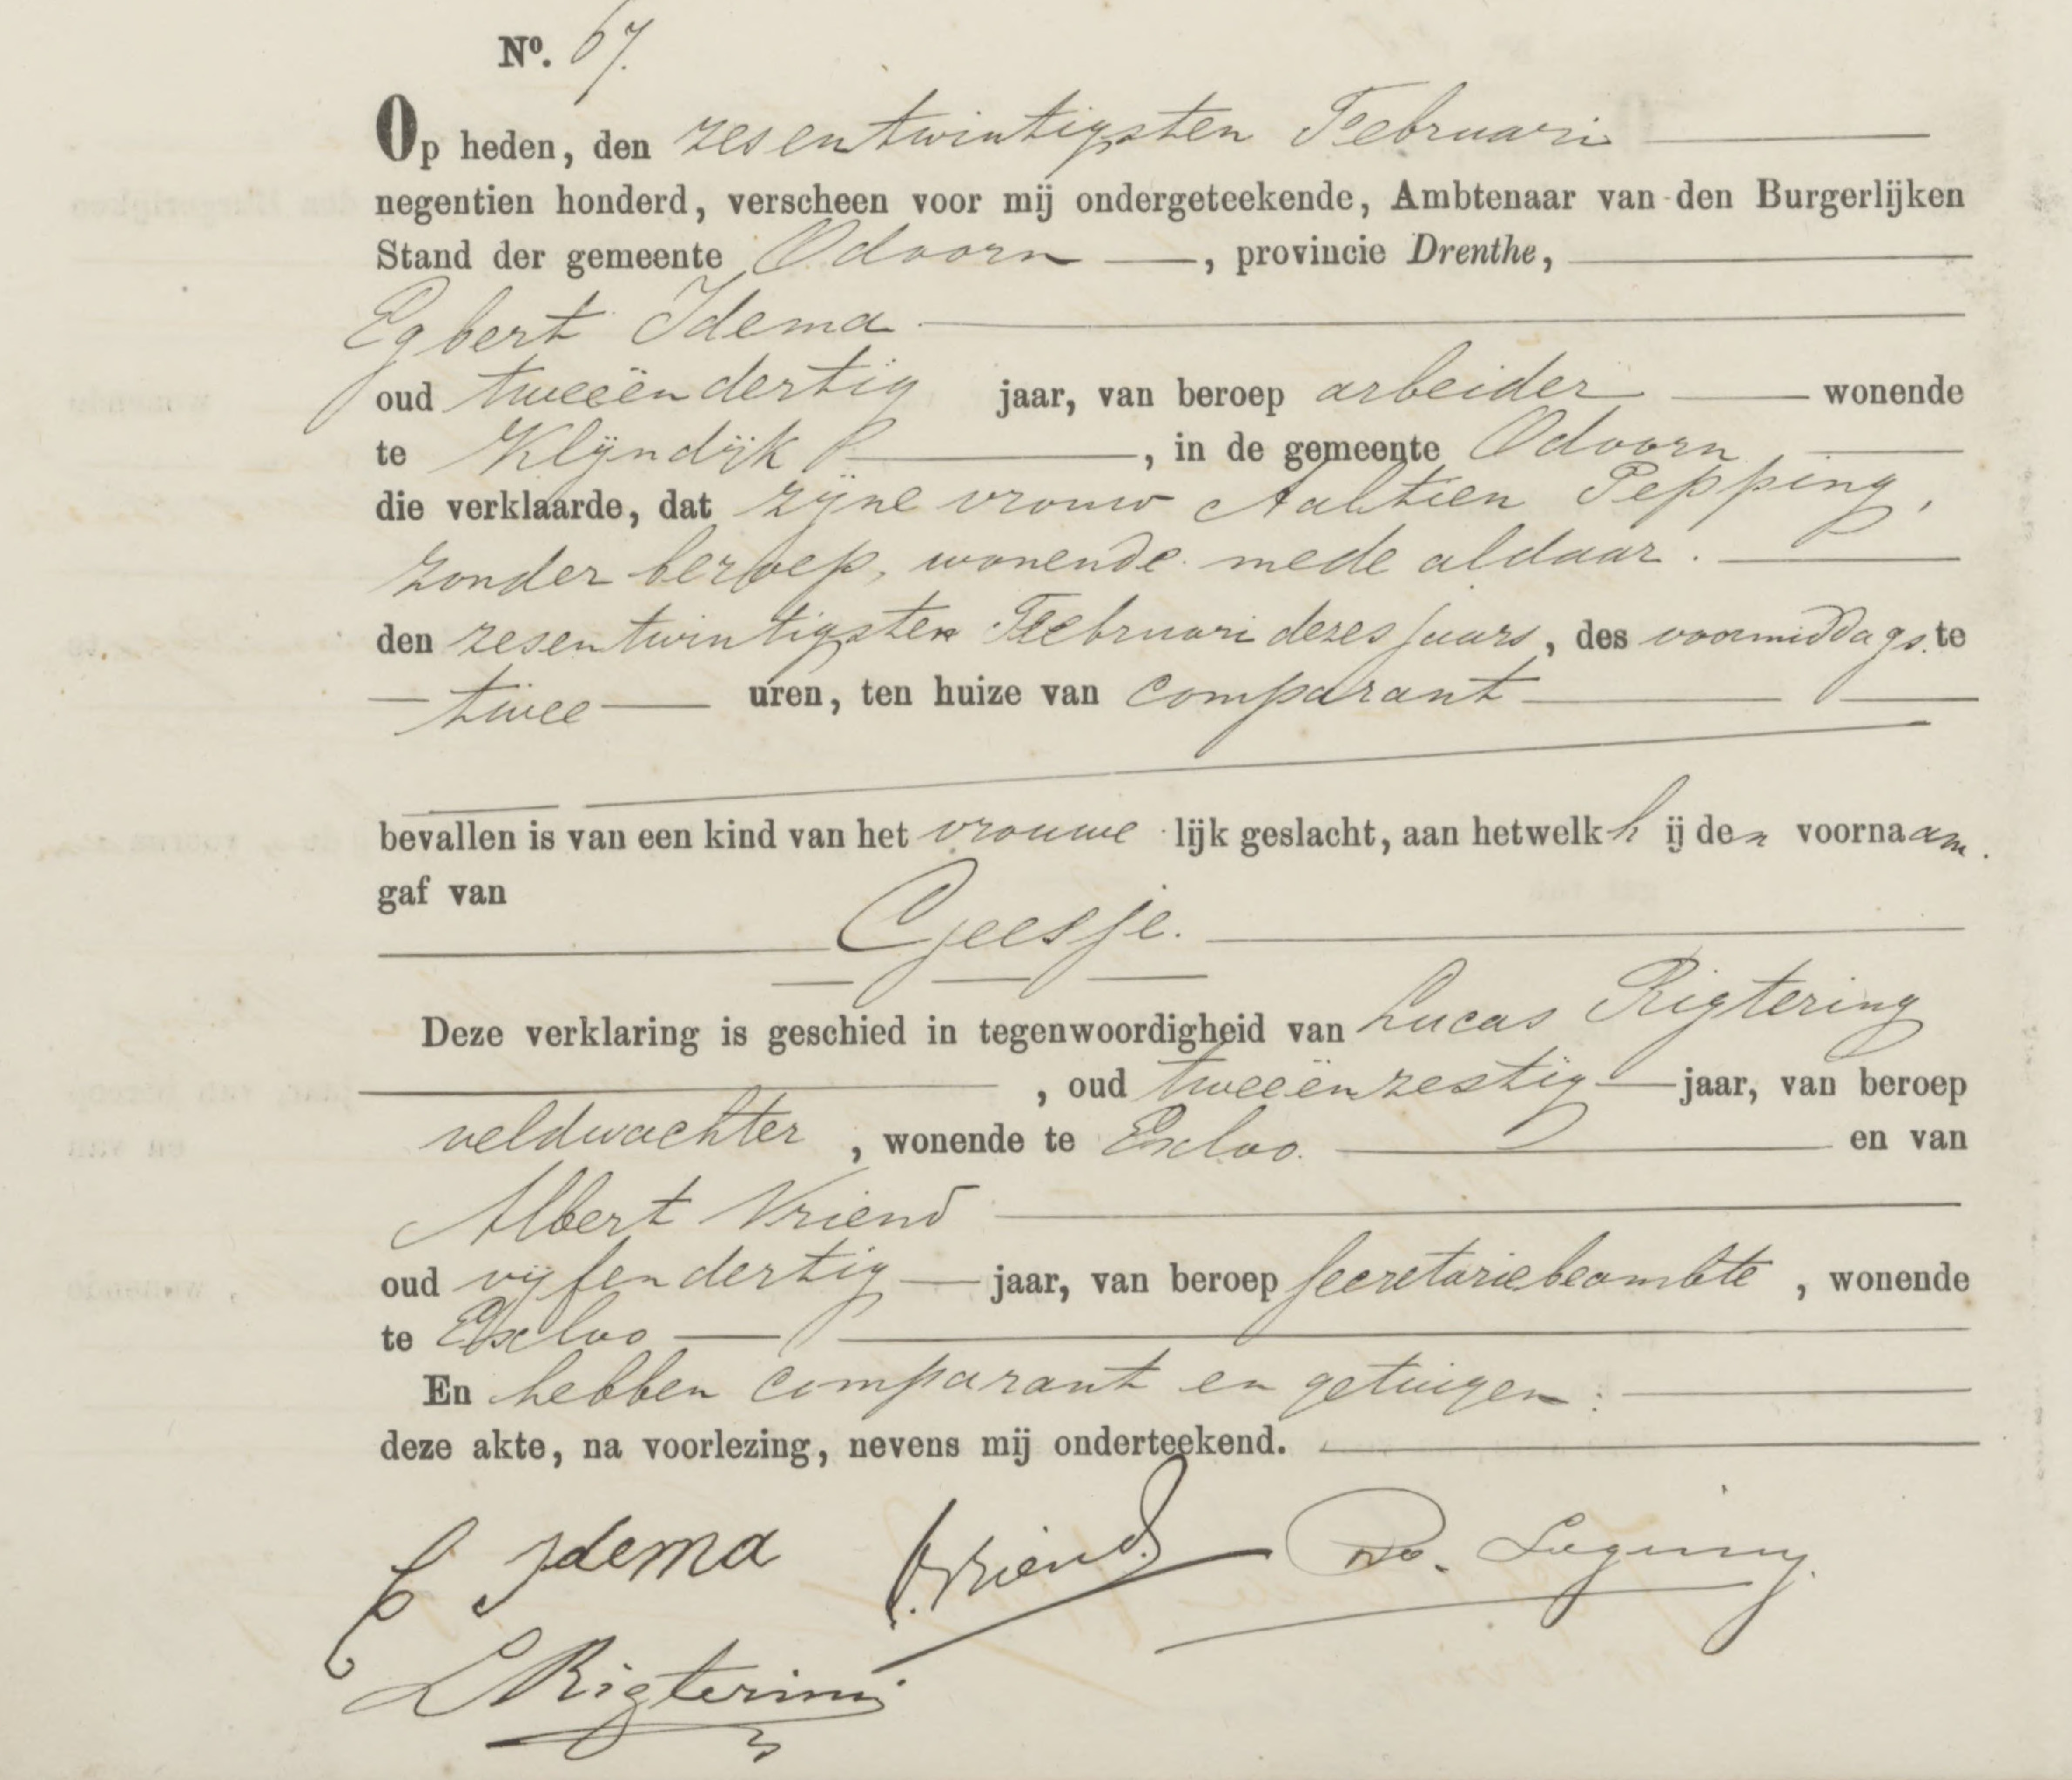 Nº. 67.
Op heden, den zesentwintigsten Februari
negentien honderd, verscheen voor mij ondergeteekende, Ambtenaar van den Burgerlijken
Stand der gemeente Odoorn, provincie Drenthe,
Egbert Idema
oud tweeëndertig jaar, van beroep arbeider wonende
te Klijndijk, in de gemeente Odoorn
die verklaarde, dat zijne vrouw Aaltien Pepping,
zonder beroep, wonende mede aldaar.
den zesentwintigsten Februari dezes jaars, des voormiddags te
twee uren, ten huize van comparant
bevallen is van een kind van het vrouwelijk geslacht, aan hetwelk hij den voornaam
gaf van
Geesje.
Deze verklaring is geschied in tegenwoordigheid van Lucas Rigtering
, oud tweeënzestig jaar, van beroep
veldwachter, wonende te Exloo en van
Albert Vriend
oud vijfendertig jaar, van beroep secretariebeambte, wonende
te Exloo
En hebben comparant en getuigen:
deze akte, na voorlezing, nevens mij onderteekend.
E Idema A. Vriend
L Rigtering